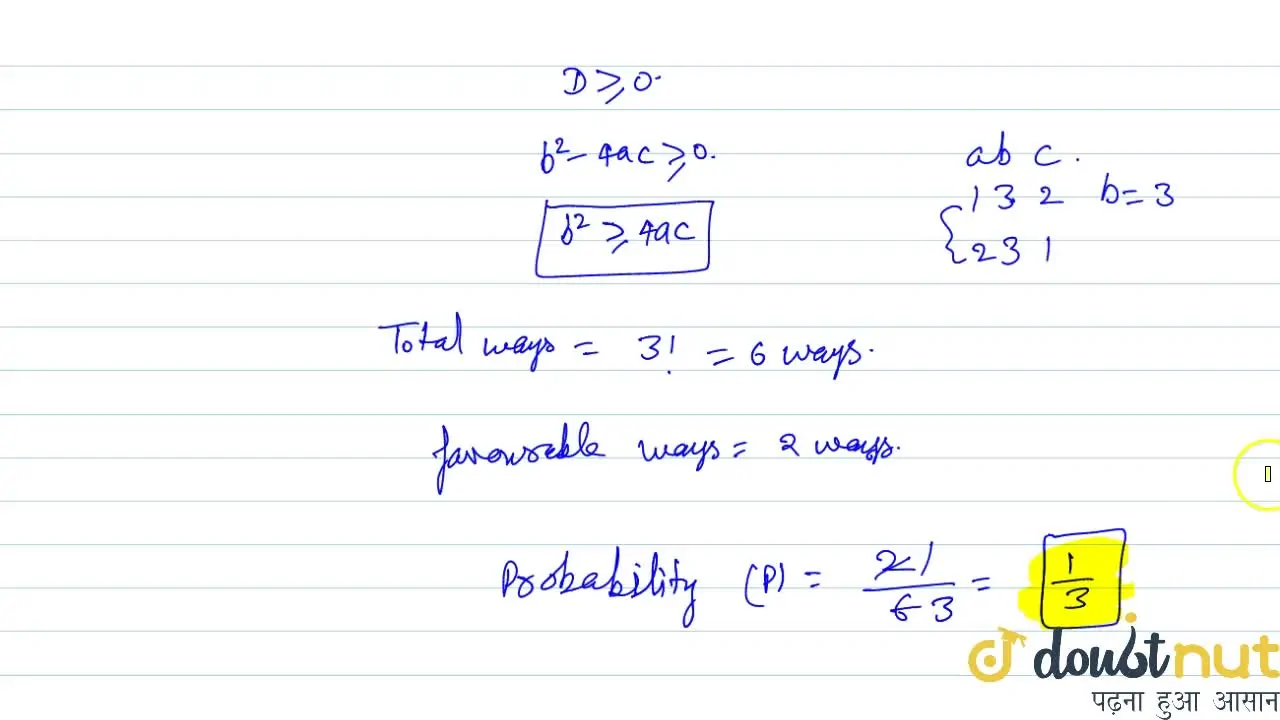 D ≥ 0.
b² - 4ac ≥ 0.
b² ≥ 4ac
a b c .
1 3 2 b = 3
{ 2 3 1
Total ways = 3! = 6 ways.
favourable ways = 2 ways.
Probability (P) = 2 1 / 6 3 = 1/3
doubtnut
पढ़ना हुआ आसान